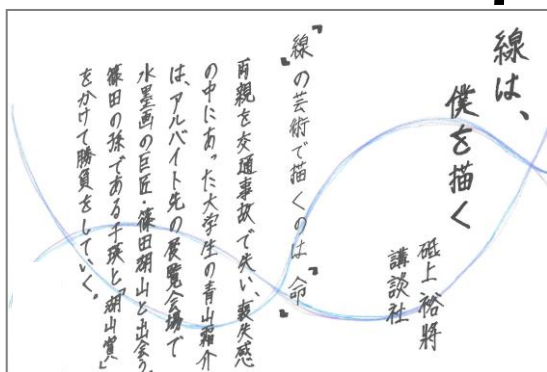 線は、
僕を描く
砥上裕將
講談社
『線』の芸術で描くのは『命』
両親を交通事故で失い、喪失感
の中にあった大学生の青山霜介
は、アルバイト先の展覧会場で
水墨画の巨匠・篠田湖山と出会う。
篠田の孫である千瑛と「湖山賞」
をかけて勝負をしていく。